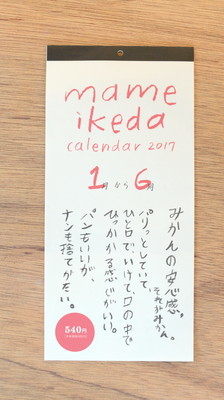 mame
ikeda
calendar 2017
1月から6月
みかんの安心感。
それがみかん。
パリっとしていて、
ひと口でいけて、口の中で
ひっかかる感じがいい。
パンもいいが、
ナンも捨てがたい。
540円